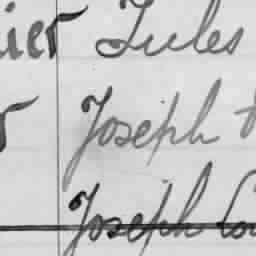 ier Jules
r Joseph
Joseph